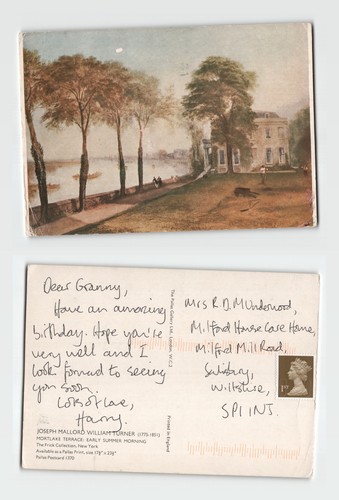 Dear Granny,
Have an amazing
birthday. Hope you're
very well and I
look forward to seeing
you soon.
Lots of love,
Harry.
JOSEPH MALLORD WILLIAM TURNER (1775-1851)
MORTLAKE TERRACE: EARLY SUMMER MORNING
The Frick Collection, New York
Available as a Pallas Print, size 17⅞" x 23⅞"
Pallas Postcard 1370
The Pallas Gallery Ltd., London, W.C.2
Printed in England
Mrs R.D.M Underwood,
Milford House Care Home,
Milford Mill Road,
Salisbury,
Wiltshire,
SP1 1NJ.
1ST